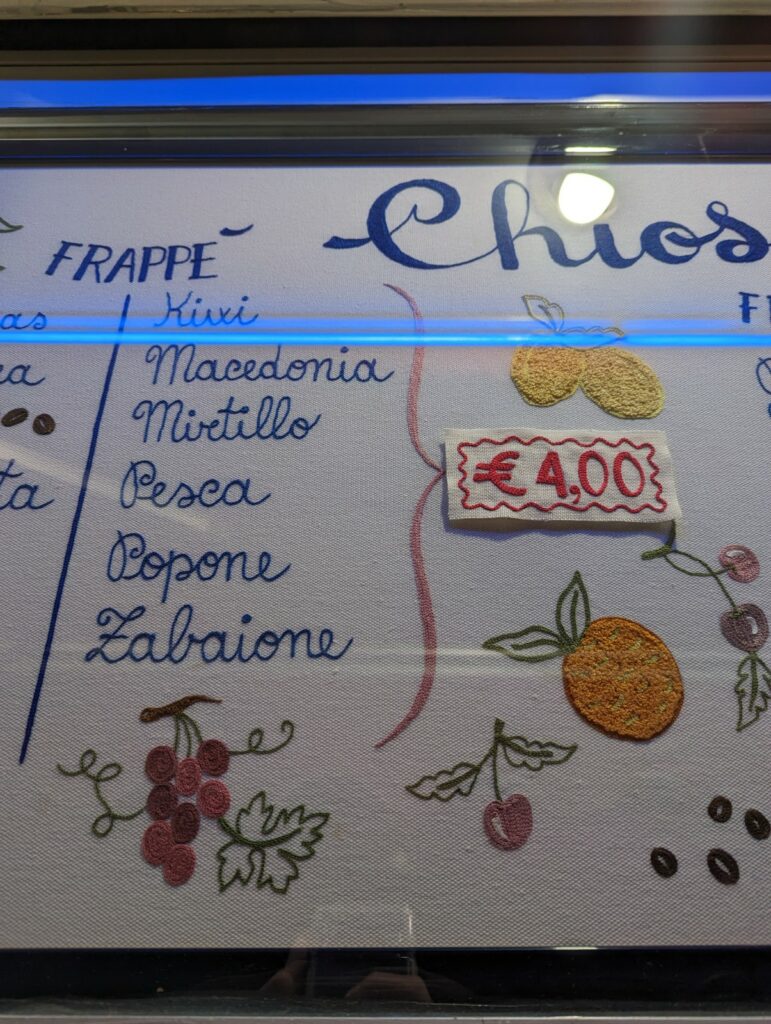 Chios
FRAPPÉ
Kiwi
Macedonia
Mirtillo
Pesca
Popone
Zabaione
€ 4,00